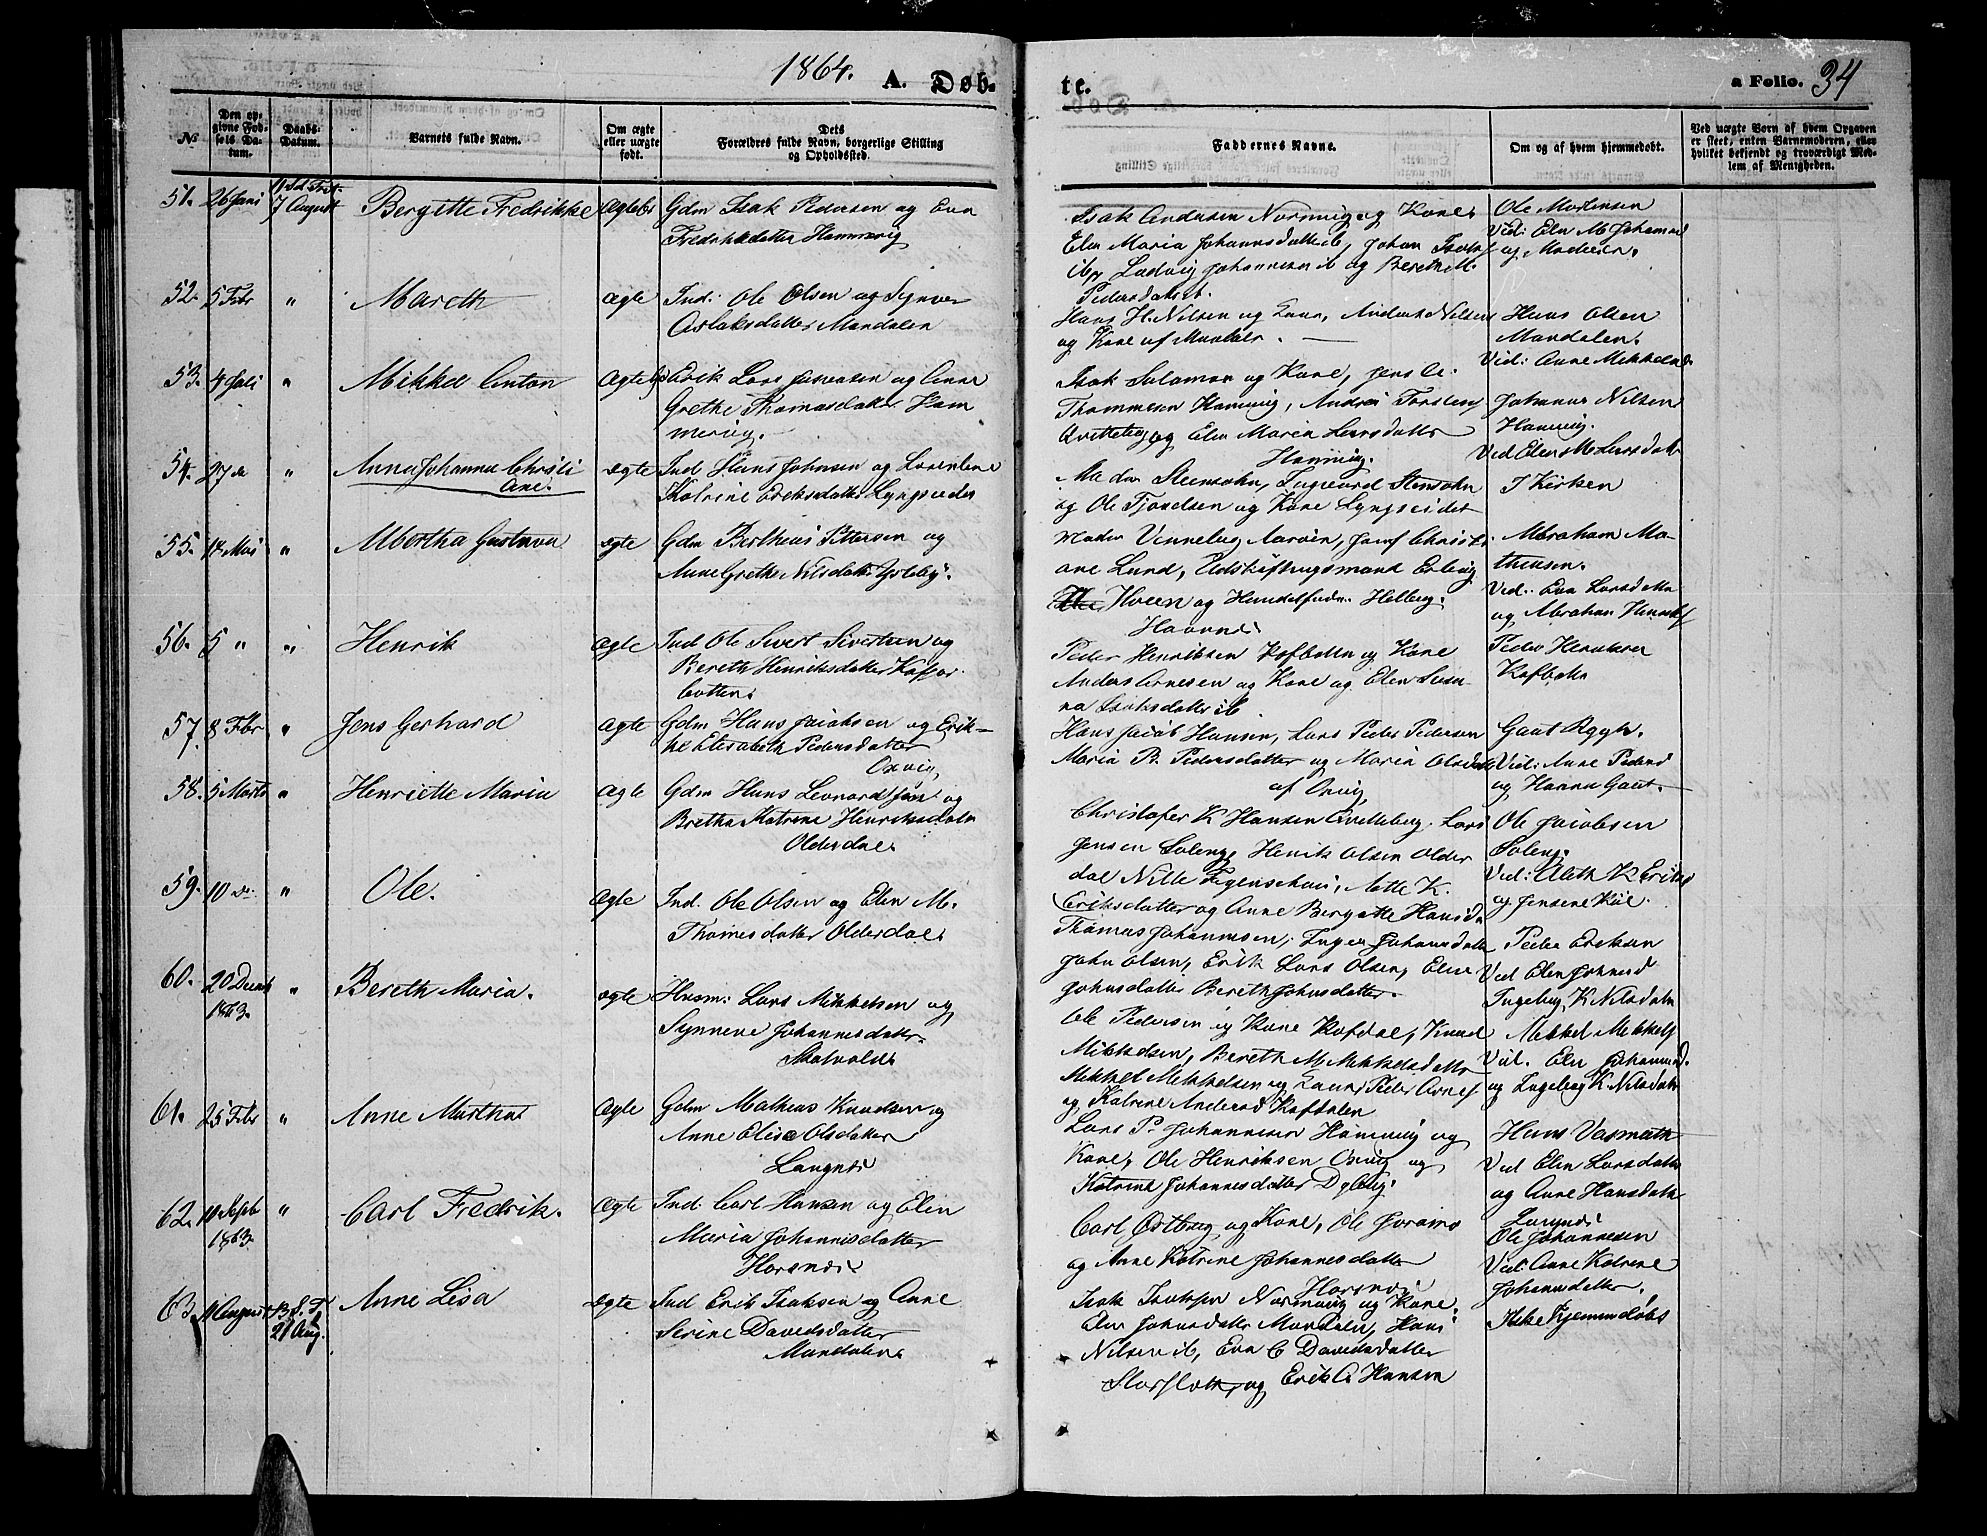 1864. A. Døb-
te. a Folio. 34
№
Den op-
givne Fød-
sels Da-
tum.
Daabs-
Datum.
Barnets fulde Navn.
Om ægte
eller uægte
født.
Dets
Forældres fulde Navn, borgerlige Stilling
og Opholdssted.
Faddernes Navne.
Om og af hvem hjemmedøbt.
Ved uægte Børn af hvem Opgaven
er skeet, enten Barnemoderen, eller
hvilket bekjendt og troværdigt Med-
lem af Menigheden.
51. 26 Juni 7 August Bergitte Fredrikke Ægte Gdm Isak Pedersen og Eva
Fredriksdatter Hammervig
Isak Andersen Normvig og Kone
Elen Maria Johannsdatter ib, Johan Isaks
ib, Ludvig Johannesen ib og Bereth M.
Pedersdatter.
Ole Mortensen
Vid: Elen M Johannsd
og Moderen.
52. 5 Febr " Mareth ægte Ind: Ole Olsen og Synver
Aslaksdatter Mandalen
Hans H. Nilsen og Kone, Anders Nilsen
og Kone af Mandalen.
Hans Olsen
Mandalen.
Vid: Anne Mikkelsd
53. 4 Juli " Mikkel Anton Ægte Erik Lars Jensen og Anne
Grethe Thomasdatter Ham
mervig.
Isak Salamon og Kone, Jens
Thommesen Hamvig, Andrea Torstens
Qvitteberg og Elen Maria Larsdatter
Hamvig.
Johannes Nilsen
Hamvig.
Vid Elen M Larsdatt
54. 27 de " Anna Johanna Christi
ane.
ægte Ind Hans Johnsen og Lorentine
Katrine Eriksdatter Lyngseidet
Madm Steensohn, Ingvard Steensohn
og Ole Fjordsen og Kone Lyngseidet
I Kirken
55. 14 Mai " Albertha Gustava ægte Gdm Berthius Pettersen og
Anne Grethe Nilsdatter Ysteby.
Madm Venneberg Aarøen, Josef Christi
ane Lund, Udskiftningsmand Erling
Hveen og Handelsfuldm. Helberg.
Havnnes
Abraham Ma-
thiesen.
Vid: Eva Larsdatter
og Abraham Henriks
56. 5 " " Henrik Ægte Ind Ole Sivert Sivertsen og
Bereth Henriksdatter Kaffior
botten.
Peder Henriksen Kofbotn og Kone
Anders Arnesen og Kone og Elen Susa
na Isaksdatter ib
Peder Henriksen
Kofbotn
57. 8 Febr " Jens Gerhard Ægte Gdm Hans Jacobsen og Erik-
ke Elisabeth Pedersdatter
Oxvig
Hans Jacob Hansen, Lars Peder Pedersen
Maria B. Pedersdatter og Maria Olsdatt
af Oxvig
Gaut Rygh.
Vid: Anne Pedersd
og Hanna Gaut.
58. 5 Marts " Henriette Maria Ægte Gdm Hans Leonard Jens og
Bretha Katrine Henriksdatter
Olderdal
Christofer K Hansen Qvitteberg. Lars
Jensen Soleng, Henrik Olsen Older
dal Nille Figenschau, Aleth K.
Eriksdatter og Anne Bergitte Hansd
Ole Jacobsen
Soleng.
Vid: Aleth K Eriksd
og Jensine Kiil.
59. 10 de " Ole. Ægte Ind. Ole Olsen og Elen M.
Thomesdatter Olderdal
Thomas Johannesen, Inger Johansdatter
John Olsen, Erik Lars Olsen, Elen
Johnsdatter Bereth Johnsdatter.
Peder Eriksen
Vid Elen Johnsd
Ingeborg K Nilsdatter
60. 20 Decemb
1863.
" Bereth Maria. ægte Husm: Lars Mikkelsen og
Synneve Johannesdatter
Skatvold
Ole Pedersen og Kone Kofdal, Knud
Mikkelsen, Bereth M Mikkelsdatter
Mikkel Mikkelsen og Kone, Peder Arnes
og Katrine Andersd Kofdalen
Mikkel Mikkels
Vid. Elen Johannesd.
og Ingeborg K Nilsdatter
61. 25 Febr " Anne Martha Ægte Gdm Mathias Knudsen og
Anne Elise Olsdatter
Langnes
Lars P. Johannesen Hamvig og
Kone, Ole Henriksen Oxvig og
Katrine Johannesdatter Dybvig.
Hans Vasmuth
Vid Elen Larsdatter
og Anne Hansdatter
Langnes
62. 19 Septb
1863.
" Carl Fredrik. Ægte Ind. Carl Hansen og Elen
Maria Johannisdatter
Horsnes
Carl Østberg og Kone, Ole Joramo
og Anne Katrine Johannesdatter
Horsnes
Ole Johannesen
Vid: Anne Katrine
Johannsdatter.
63. 11 August 21 Aug. Anne Lisa Ægte Ind Erik Isaksen og Anne
Serine Davidsdatter
Mandalen
Isak Isaksen Normvig og Kone.
Elen Johnsdatter Mandalen, Hans
Nilsen ib, Eva C Davidsdatter
Storslett, og Erik A Hansen
Ikke Hjemmedøbt